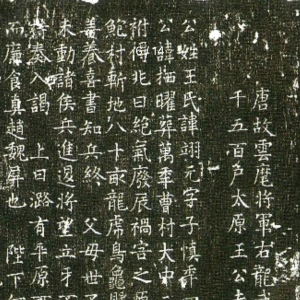 唐故雲麾將軍右龍武
千五百戶太原王公夫
公姓王氏諱翊元字子慎
公諱 曜葬萬 曹村大中
祔 兆日絕氣廢辰禍 之
鮑村斬地八十畝龍虎鳥龜
善養喜書知兵終 父母世
未動諸侯兵進退將望立
奏入謁 上曰潞有平原
而廉食真趙魏屏也 陛下